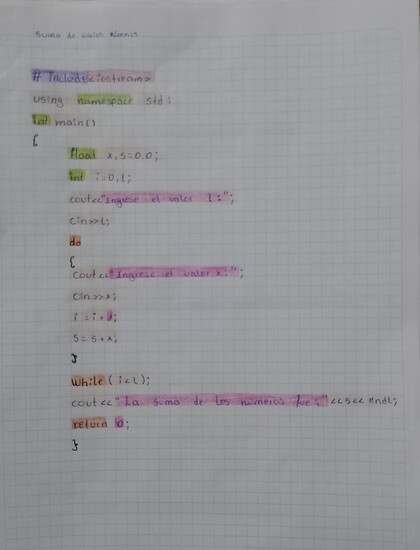 Suma de varios Numros
# Include<iostream>
using namespace std;
int main()
{
float x,s=0.0;
int i=0,l;
cout<<"Ingrese el valor l:";
cin>>l;
do
{
cout<<"Ingrese el valor x:";
cin>>x;
i=i+1;
s=s+x;
}
while(i<l);
cout<<"La suma de los numeros fue:"<<s<<endl;
return 0;
}